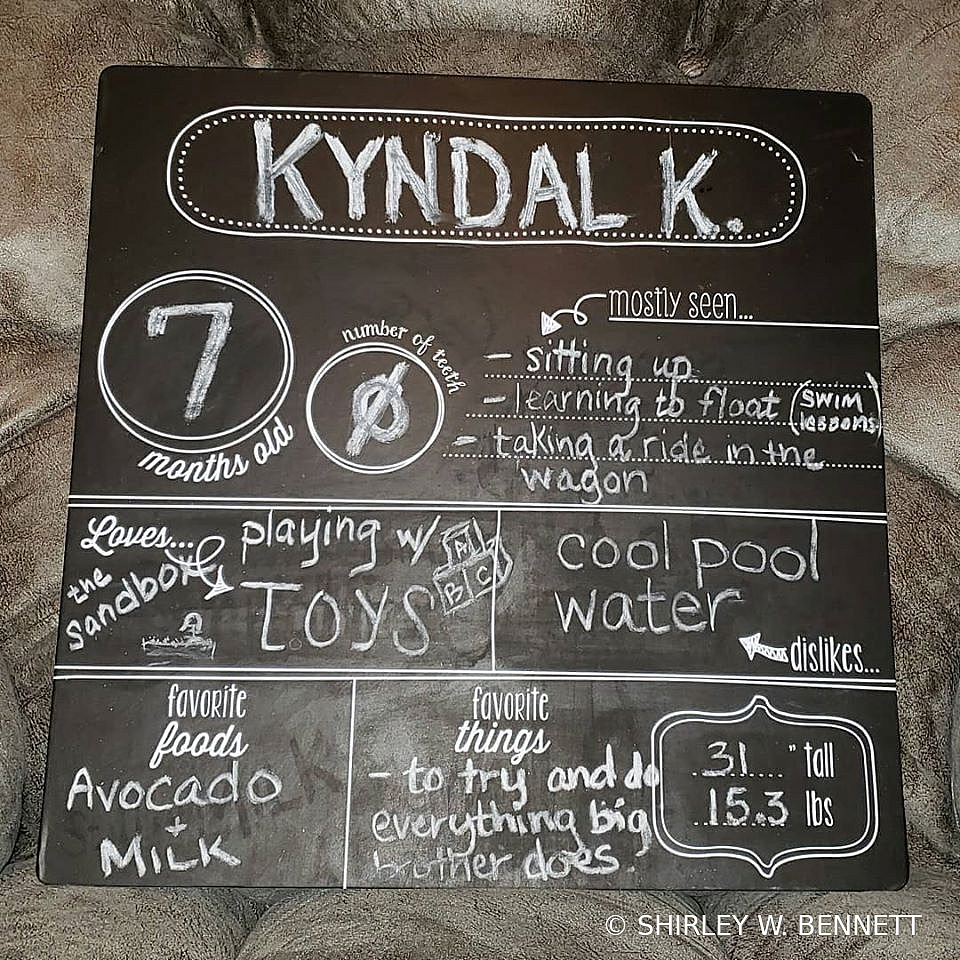 KYNDAL K.
7
months old
number of teeth
0
mostly seen...
- sitting up
- learning to float (SWIM lessons)
- taking a ride in the
wagon
Loves...
the
Sandbox
playing w/
TOYS
A
B C
cool pool
water
dislikes...
favorite
foods
Avocado
+
MILK
favorite
things
- to try and do
everything big
brother does.
31 " tall
15.3 lbs
© SHIRLEY W. BENNETT